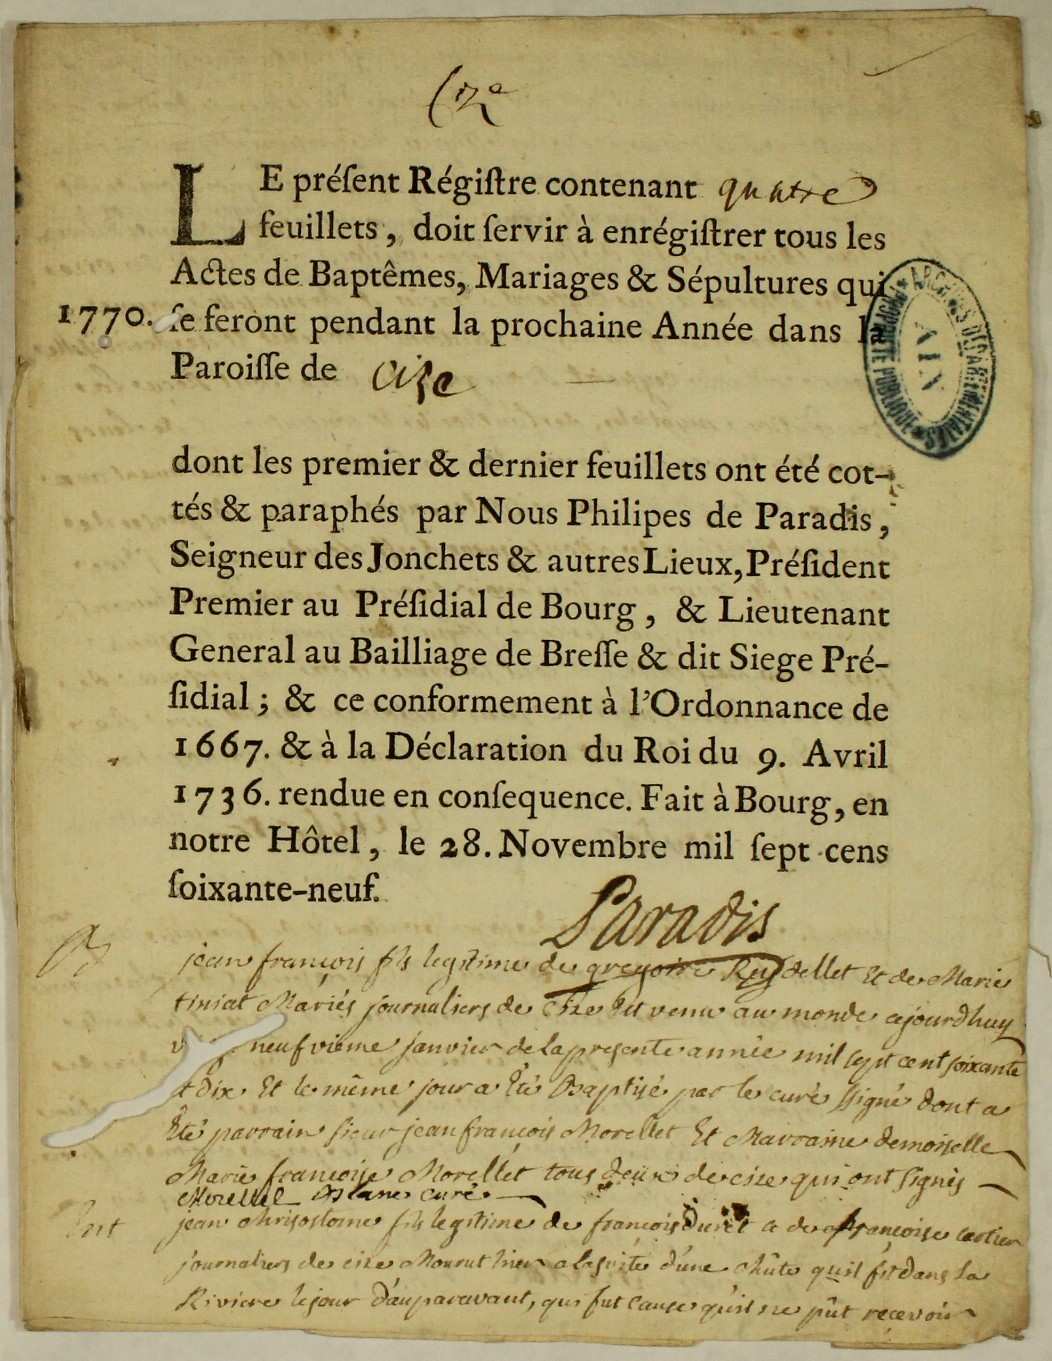 LE préſent Régiſtre contenant quatre
feuillets, doit ſervir à enrégiſtrer tous les
Actes de Baptêmes, Mariages & Sépultures qui
1770. ſe feront pendant la prochaine Année dans la
Paroiſſe de Cize
ARCHIVES DÉPARTEMENTALES PROPRIÉTÉ PUBLIQUE
AIN
dont les premier & dernier feuillets ont été cot-
tés & paraphés par Nous Philipes de Paradis,
Seigneur des Jonchets & autres Lieux, Préſident
Premier au Préſidial de Bourg, & Lieutenant
General au Bailliage de Breſſe & dit Siege Pré-
ſidial; & ce conformement à l'Ordonnance de
1667. & à la Déclaration du Roi du 9. Avril
1736. rendue en conſequence. Fait à Bourg, en
notre Hôtel, le 28. Novembre mil ſept cens
ſoixante-neuf.
Paradis
jean françois fils legitime de gregoire Reydellet Et de Marie
tiniat Mariés journaliers de Cize Est venu au monde cejourdhuy
neufvieme janvier de la presente année mil sept cent soixante
et dix Et le même jour a Eté Baptisé par le curé ssigné dont a
Eté parrain sieur jean françois Morellet Et Marraine demoiselle
Marie françoise Morellet tous deux de cize qui ont signés
Morellet curé
jean chrisostome fils legitime de françois Duret et de françoise cartier
journaliers de cize Mourut hier a la suite d'une chûte qu'il fit dans la
Riviere le jour d'auparavant, qui fut cause qu'il ne pût recevoir